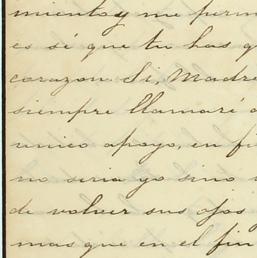 miento y me perm
es sé que tu has q
corazon Si, Madre
siempre llamaré a
unico apoyo, en fi
no seria yo sino
de volver sus ojos
mas que en el fin